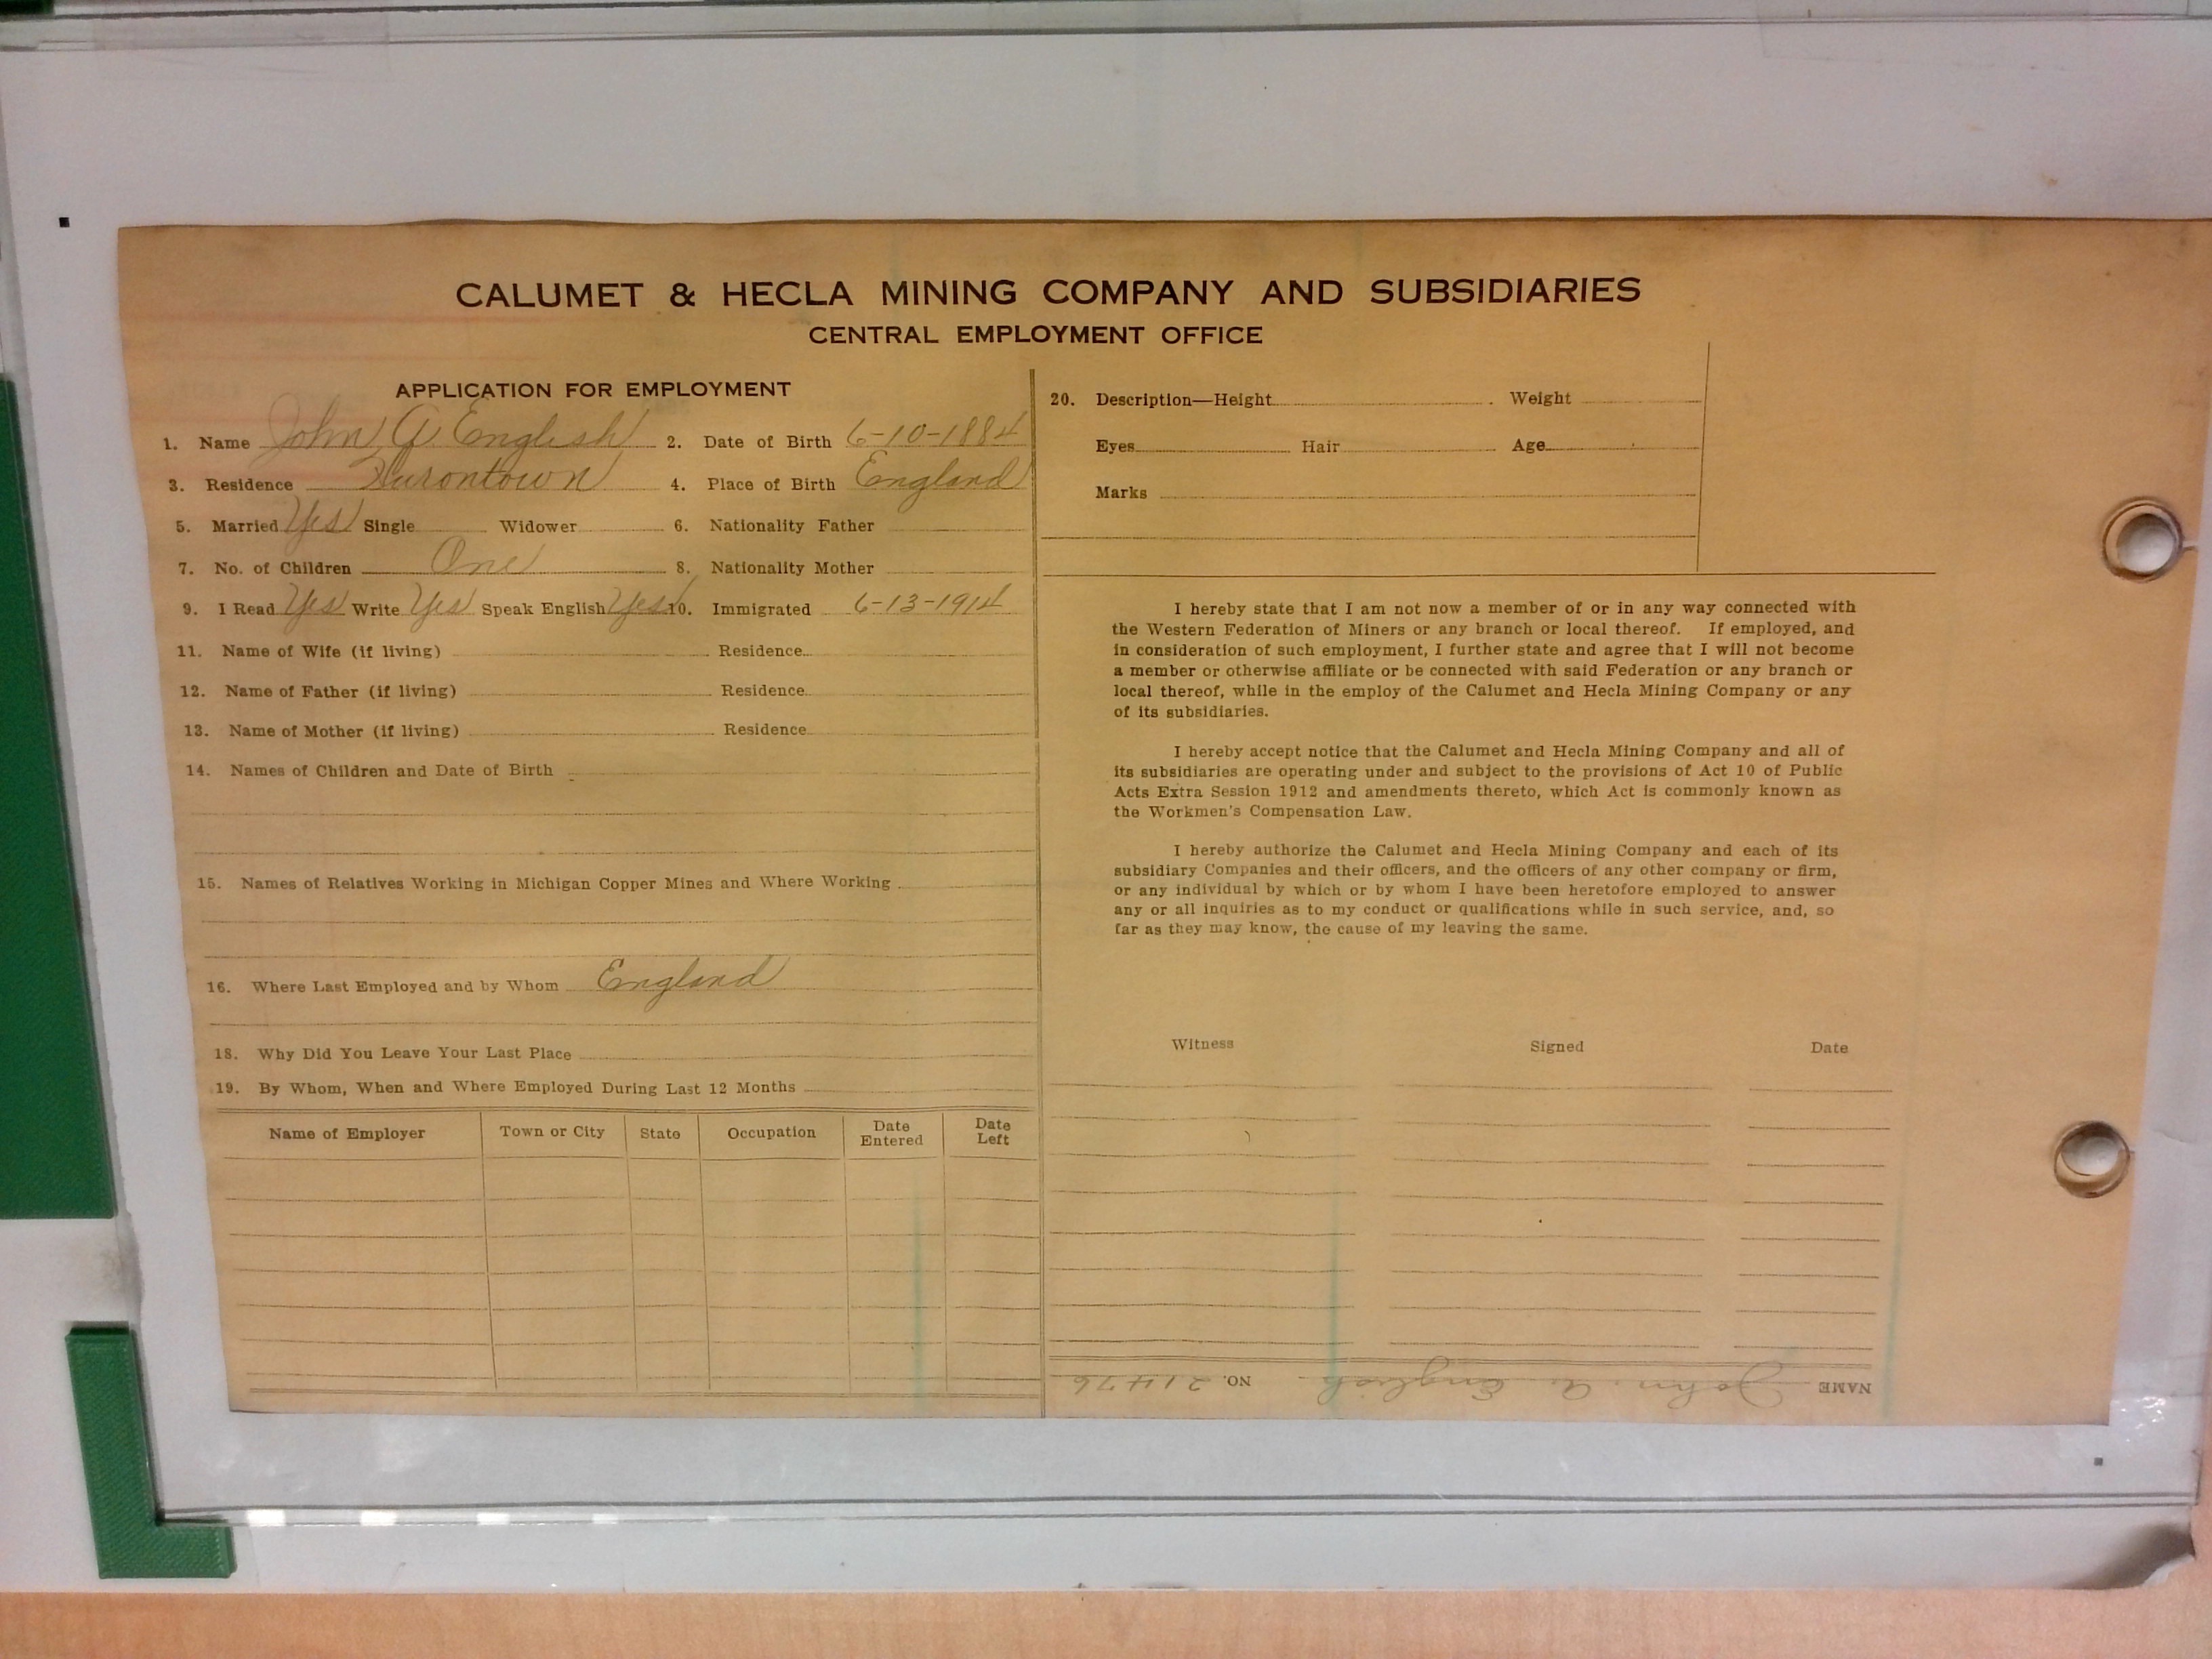 CALUMET & HECLA MINING COMPANY AND SUBSIDIARIES
CENTRAL EMPLOYMENT OFFICE
APPLICATION FOR EMPLOYMENT
1. Name John A English 2. Date of Birth 6-10-1884
3. Residence Hurontown 4. Place of Birth England
5. Married Yes Single Widower 6. Nationality Father
7. No. of Children One 8. Nationality Mother
9. I Read Yes Write Yes Speak English Yes 10. Immigrated 6-13-1914
11. Name of Wife (if living) Residence
12. Name of Father (if living) Residence
13. Name of Mother (if living) Residence
14. Names of Children and Date of Birth
15. Names of Relatives Working in Michigan Copper Mines and Where Working
16. Where Last Employed and by Whom England
18. Why Did You Leave Your Last Place
19. By Whom, When and Where Employed During Last 12 Months
Name of Employer Town or City State Occupation Date Entered Date Left
20. Description—Height Weight
Eyes Hair Age
Marks
I hereby state that I am not now a member of or in any way connected with
the Western Federation of Miners or any branch or local thereof. If employed, and
in consideration of such employment, I further state and agree that I will not become
a member or otherwise affiliate or be connected with said Federation or any branch or
local thereof, while in the employ of the Calumet and Hecla Mining Company or any
of its subsidiaries.
I hereby accept notice that the Calumet and Hecla Mining Company and all of
its subsidiaries are operating under and subject to the provisions of Act 10 of Public
Acts Extra Session 1912 and amendments thereto, which Act is commonly known as
the Workmen's Compensation Law.
I hereby authorize the Calumet and Hecla Mining Company and each of its
subsidiary Companies and their officers, and the officers of any other company or firm,
or any individual by which or by whom I have been heretofore employed to answer
any or all inquiries as to my conduct or qualifications while in such service, and, so
far as they may know, the cause of my leaving the same.
Witness Signed Date
NAME John A. English NO. 21476